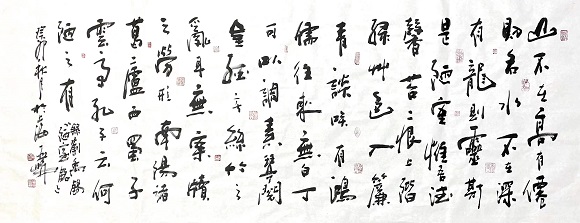 山不在高有僊
則名水不在深
有龍則靈斯
是陋室惟吾德
馨苔痕上階
綠艸色入簾
青談咲有鴻
儒往來無白丁
可以調素琴閱
金經无絲竹之
亂耳無案牘
之勞形南陽諸
葛廬西蜀子
雲亭孔子云何
陋之有
錄劉禹錫
陋室銘
癸卯秋月於上海